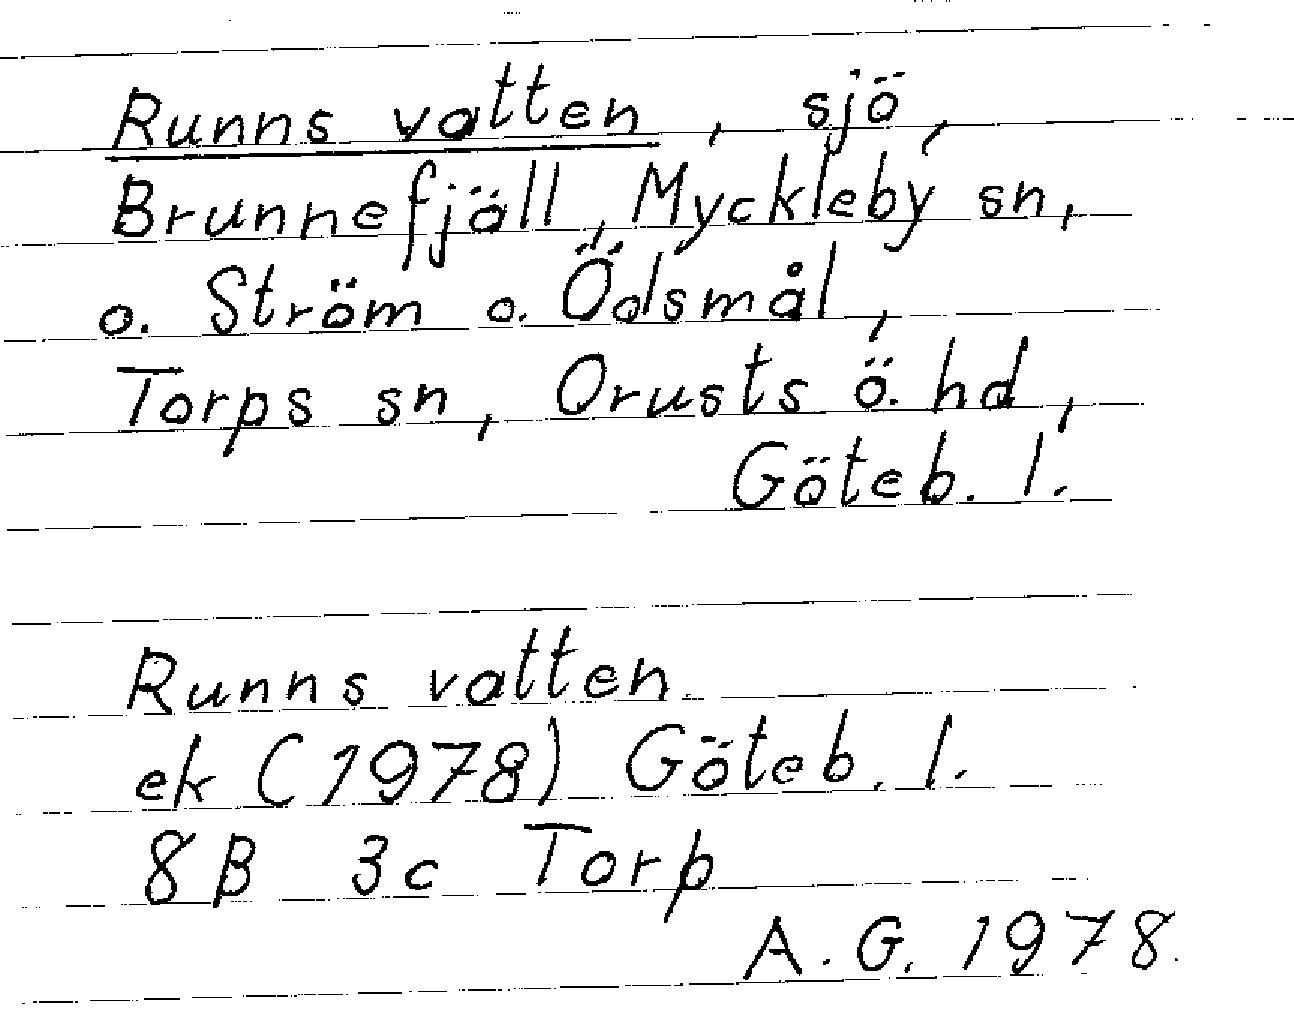 Runns vatten, sjö,
Brunnefjäll, Myckleby sn,
o. Ström o. Ödsmål,
Torps sn, Orusts ö. hd,
Göteb. l.
Runns vatten
ek (1978) Göteb. l.
8B 3c Torp
A. G. 1978.